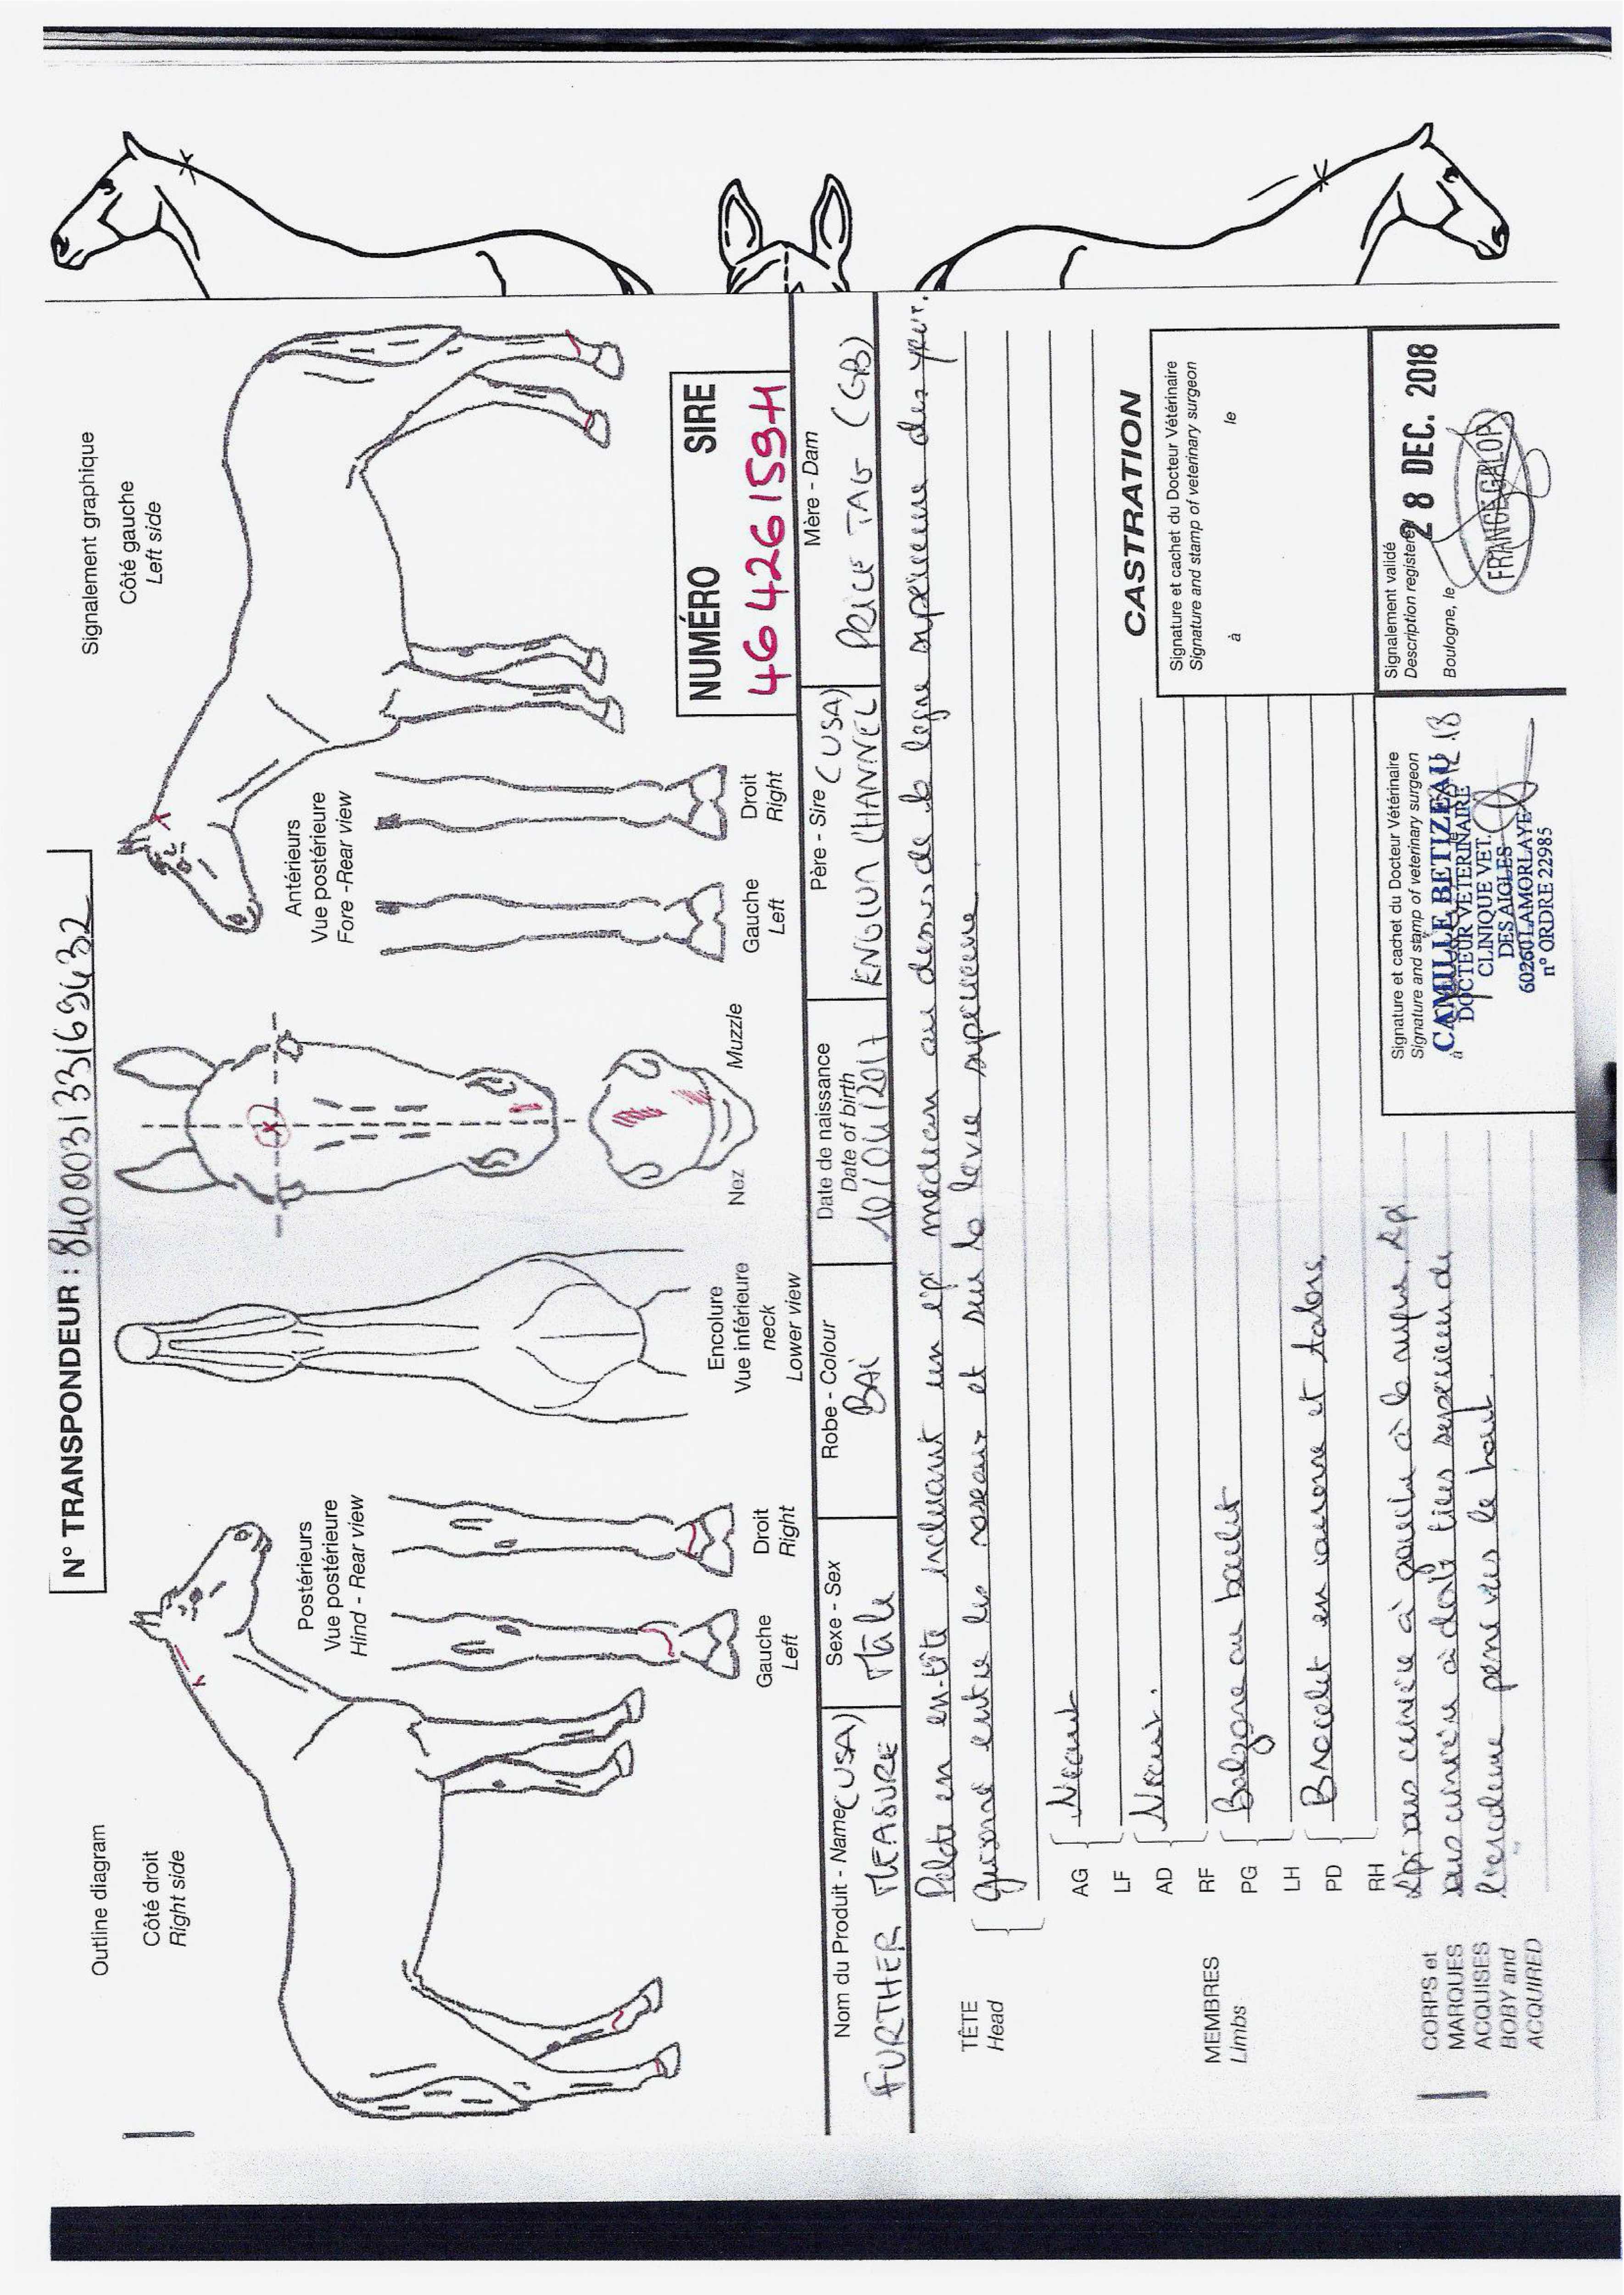 N° TRANSPONDEUR : 840003133169432
Outline diagram
Signalement graphique
Côté droit
Right side
Côté gauche
Left side
Postérieurs
Vue postérieure
Hind - Rear view
Gauche
Left
Droit
Right
Encolure
Vue inférieure
neck
Lower view
Nez
Muzzle
Antérieurs
Vue postérieure
Fore -Rear view
Gauche
Left
Droit
Right
NUMÉRO SIRE
46 426 159H
Nom du Produit - Name (USA)
FURTHER MEASURE
Sexe - Sex
Mâle
Robe - Colour
BAI
Date de naissance
Date of birth
10/04/2017
Père - Sire (USA)
ENGLISH CHANNEL
Mère - Dam
PRICE TAG (GB)
TÊTE
Head
Pelote en en-tête incluant un épi médian au dessus de la ligne supérieure des yeux.
entre les naseaux et sur la lèvre supérieure
MEMBRES
Limbs
AG
LF
Néant
AD
RF
Néant.
PG
LH
Balzane au boulet
PD
RH
Bracelet en couronne et talons.
CORPS et
MARQUES
ACQUISES
BOBY and
ACQUIRED
Epi sous crinière à gauche à la nuque. Epi
sous crinière à droite tiers supérieur de
l'encolure penné vers le haut.
CASTRATION
Signature et cachet du Docteur Vétérinaire
Signature and stamp of veterinary surgeon
à le
Signature et cachet du Docteur Vétérinaire
Signature and stamp of veterinary surgeon
à
CAMILLE BETIZEAU
DOCTEUR VETERINAIRE
CLINIQUE VET.
DES AIGLES
60260 LAMORLAYE
n° ORDRE 22985
Signalement validé
Description registered
Boulogne, le
28 DEC. 2018
FRANCE GALOP